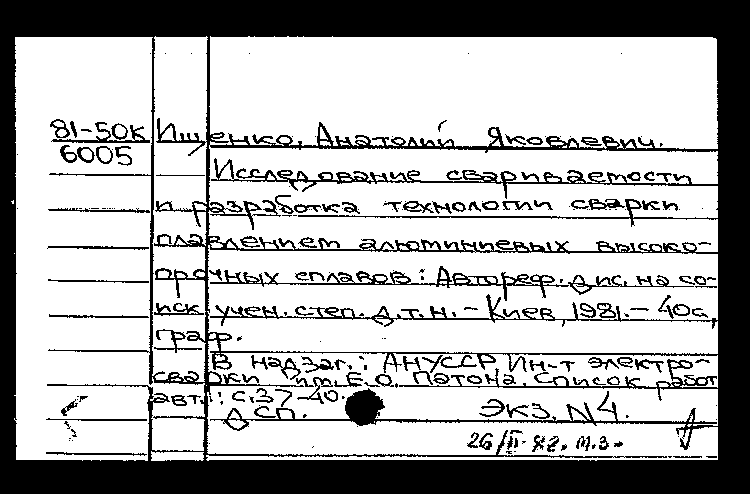 81-50К Ищенко, Анатолий Яковлевич.
6005
Исследование свариваемости
и разработка технологии сварки
плавлением алюминиевых высоко-
прочных сплавов: Автореф. дис. на со-
иск учен. степ. д.т.н. - Киев, 1981. - 40с,
граф.
В надзаг.: АНУССР Ин-т электро-
сварки им. Е.О. Патона. Список работ
авт.: с.37-40.
ДСП. Экз. N4.
26/II-82. м.з-